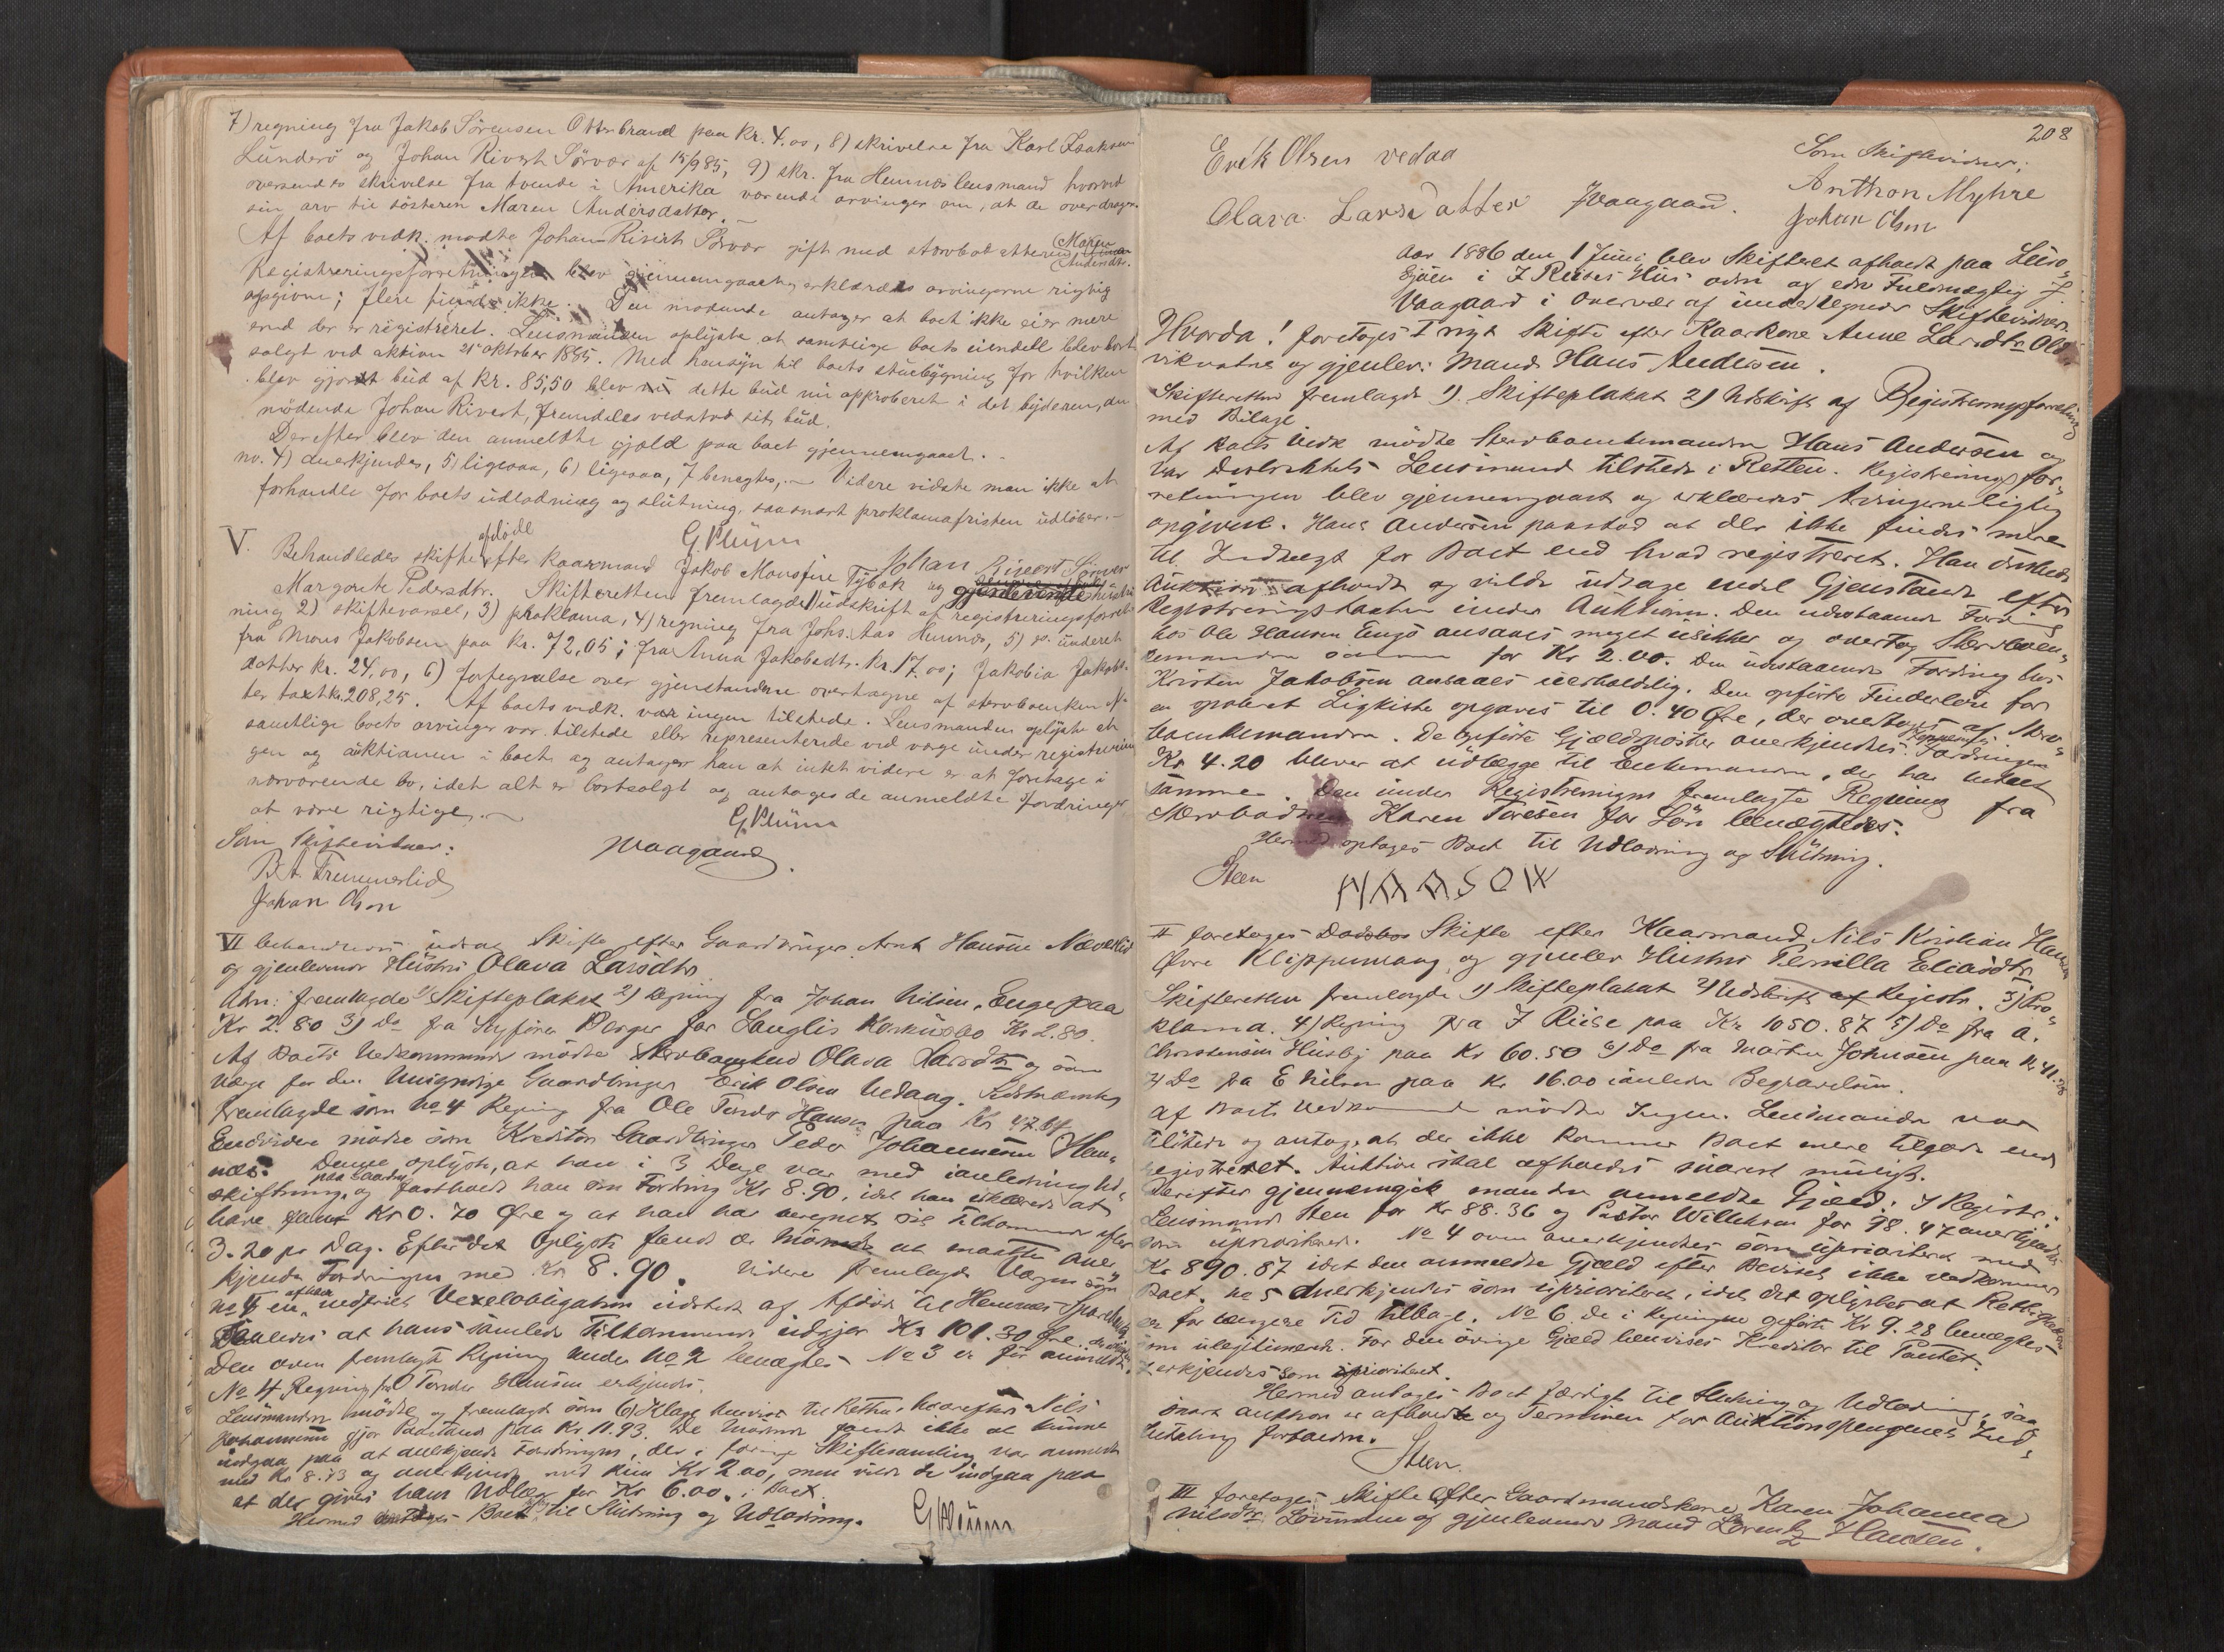 7) regning fra Jakob Sørensen Ottrbrand paa kr. 4.00, 8) skrivelse fra Karl Isaksen
Lünderø og Johan Rivert Sørvær af 15/9 85, 9) skr. fra Hemnes lensmand hvorved
oversendes skrivelse fra tvende i Amerika værende arvinger om, at de overdrager
sin arv til søsteren Maren Andersdatter. —
Af boets vedk. mødte Johan Rivert Sørvær gift med stervbodatteren Maren
Andersdtr.
Registreringsforretningen blev gjennemgaaet, erklæredes arvingerne rigtig
opgivne; flere findes ikke. Den mødende antager at boet ikke eier mere
end der er registreret. Lensmanden oplyste, at samtlige boets eiendele blev bort
solgt ved aktion 21 oktober 1885. Med hensyn til boets stuebygning for hvilken
blev gjort bud af kr. 85,50 blev dette bud nu approberet i det byderen, den
mødende Johan Rivert, fremdeles vedstod sit bud.
Derefter blev den anmeldte gjæld paa boet gjennemgaaet. -
no. 4) anerkjendes, 5) ligesaa, 6) ligesaa, 7 benegtes, — Videre vidste man ikke at
forhandle for boets udlodning og slutning, saasnart proklamafristen udløber. —
G Klüm
Johan Rivert Sörvær
V. Behandledes skifte efter afdøde kaarmand Jakob Monsen Tybæk og gjenlevende hustru
Margrete Pedersdtr. Skifteretten fremlagde 1) udskrift af registreringsforret-
ning 2) skiftevarsel, 3) proklama, 4) regning fra Johs. Aas Hemnes, 5) do. underet
fra Mons Jakobsen paa kr. 72,05; fra Anna Jakobsdtr. kr. 17.00; Jakobia Jakobs-
datter kr. 24,00, 6) fortegnelse over gjenstandene overtagne af stervboenken ef-
ter taxt kr. 208,25. Af boets vedk. var ingen tilstede. Lensmanden oplyste at
samtlige boets arvinger var tilstede eller representerede ved verge under registrerin
gen og auktionen i boet og antager han at intet videre er at foretage i
nærværende bo, idet alt er bortsolgt og antages de anmeldte fordringer
at være rigtige. —
G. Klüm
Som skiftevidner:
Waagaard.
B. A. Fremmerlid
Johan Olsen
VI behandledes Skifte efter Gaardbruger Arnt Hansen Næverlid
og gjenlevende Hustru Olava Larsdtr
Adm: fremlagde 1) Skifteplakat 2) Regning fra Johan Nilsen Enge paa
Kr 2.80 3) Do fra Styfører Berger for Langlis Kr 2.80.
Af Boets Vedkommende mødte Stervboenken Olava Larsdtr og som
Værge for den Umyndige Gaardbruger Erik Olsen Vedaag.
fremlagde som No 4 Regning fra Ole Tordr Hansen paa Kr 47.64
Endvidere mødte som Kreditor Gaardbruger Peder Johannesen Hem-
næs. Denne oplyste, at han i 3 Dage var med i anledning Ud-
skiftning paa Gaarden, og fastholdt han sin Fordring Kr 8.90, idet han erklærede at
have faaet Kr 0.70 Øre og at han har beregnet sit Tilkommende efter
3.20 pr Dag. Efter det Oplyste fandt de Mødende at maatte aner
kjende Fordringen med Kr 8.90. Videre fremlagde Værgen som
No 5 en afbetalt Vexelobligation udstedt af Afdøde til Hemnes Sparebank
saaledes at hans samlede Tilkommende udgjør Kr 101.30 Øre
Den oven fremlagte Regning under No 2 benægtes. No 3 er før anmeldt
No 4 Regning fra O Tordr Hansen erkjendes.
Lensmanden mødte og fremlagde som 6) Klage til Retten, hvorefter Nils
Johannesen gjør Paastand paa Kr. 11.93. De Mødende fandt ikke at kunne
indgaa paa at anerkjende Fordringen, der i forrige Skiftesamling var anmeldt
med Kr 8.13 og anerkjendt med kun Kr 2.00, men vilde de indgaa paa
at der gives ham Udlæg for Kr 6.00 i Boet.
Hermed Boet til Slutning og Udlodning.
G Klüm
208
Erik Olsen vedaa
Som Skiftevidner:
Anthon Myhre
Olava Larsdatter Waagaard.
Johan Olsen
Aar 1886 den 1 Juni blev Skifteret afholdt paa Leiro-
sjøen i J Reeses Hus adm af edv Fuldmægtig J.
Waagaard i Overvær af undertegnede Skiftevidner.
Hvorda! foretoges I nyt Skifte efter Kaarkone Anne Larsdtr Old-
viknatnes og gjenlev: Mand Hans Andersen.
Skifteretten fremlagde 1). Skifteplakat 2) Udskrift af Registreringsforretning
med Bilage
Af Boets Vedk mødte Stervboenkemanden Hans Andersen og
var Distriktets Lensmand tilstede i Retten. Registreringsfor-
retningen blev gjennemgaaet og erklæredes Arvingerne rigtig
opgivne. Hans Andersen paastod at der ikke findes mere
til Indtægt for Boet end hvad registreret. Han ønskede
Auktion afholdt og vilde udtage endel Gjenstande efter
Registreringstaxten inden Auktionen. Den udestaaende Fordring
hos Ole Hansen Engø ansaaes meget usikker og overtog Stervboen-
kemanden samme for Kr 2.00. Den udestaaende Fordring hos
Kristen Jakobsen ansaaes uerholdelig. Den opførte Finderløn for
en opdrevet Ligkiste opgaves til 0.40 Øre, der overtoges af Sterv-
boenkemanden. De opførte Gjældsposter anerkjendtes. Fordringen
Kr 4.20 bliver at udlægge til Enkemanden, der har betalt
samme. Den under Registreringen fremlagte Regning fra
Stervbodatteren Karen Toresen for Løn benægtedes.
Hermed optages Boet til Udlodning og Slutning.
Steen HAASOW
II foretoges Skifte efter Kaarmand Nils Kristian Hansen
Øvre Klippumvang, og gjenlev Hustru Pernilla Eliasdtr
Skifteretten fremlagde 1) Skifteplakat 2) Udskrift af Registr. 3) Pro-
klama. 4) Regning fra J Riise paa Kr 1050.87 5) Do fra A.
Christensen Husby paa Kr 60.50 6) Do fra Morten Johnsen paa Kr 41.28
7) Do fra E Nilsen paa Kr 16.00 ianledn Begravelsen.
Af Boets Vedkommende mødte Ingen. Lensmanden var
tilstede og antog, at der ikke kommer Boet mere tilgode end
registreret. Auktion skal afholdes snarest muligt.
Derefter gjennemgik man den anmeldte Gjæld. I Registr.
Lensmand Sten for Kr 88.36 og Pastor Willchsen for 98.47 anerkjendtes
som uprioriteret. No 4 oven anerkjendtes som uprioriteret med
Kr 890.87 idet den anmeldte Gjæld efter Beviset ikke vedkommer
Boet. No 5 Anerkjendes som uprioriteret, idet det oplystes at Rettigheden
er for længere Tid tilbage. No 6 De i Regningen opførte Kr 9.28 benægtes
som ulegitimeret. For den øvrige Gjæld henvises Kreditor til Pantet.
7 erkjendes som uprioriteret.
Hermed antoges Boet færdigt til Slutning og Udlodning, saa
snart Auktion er afholdt og Terminen for Auktionspengenes Ind-
betaling forfalden.
Steen.
III foretoges Skifte efter Gaardmandskone Karen Johanna
Nilsdtr Lovimmen og gjenlevende Mand Lorentz Hansen.